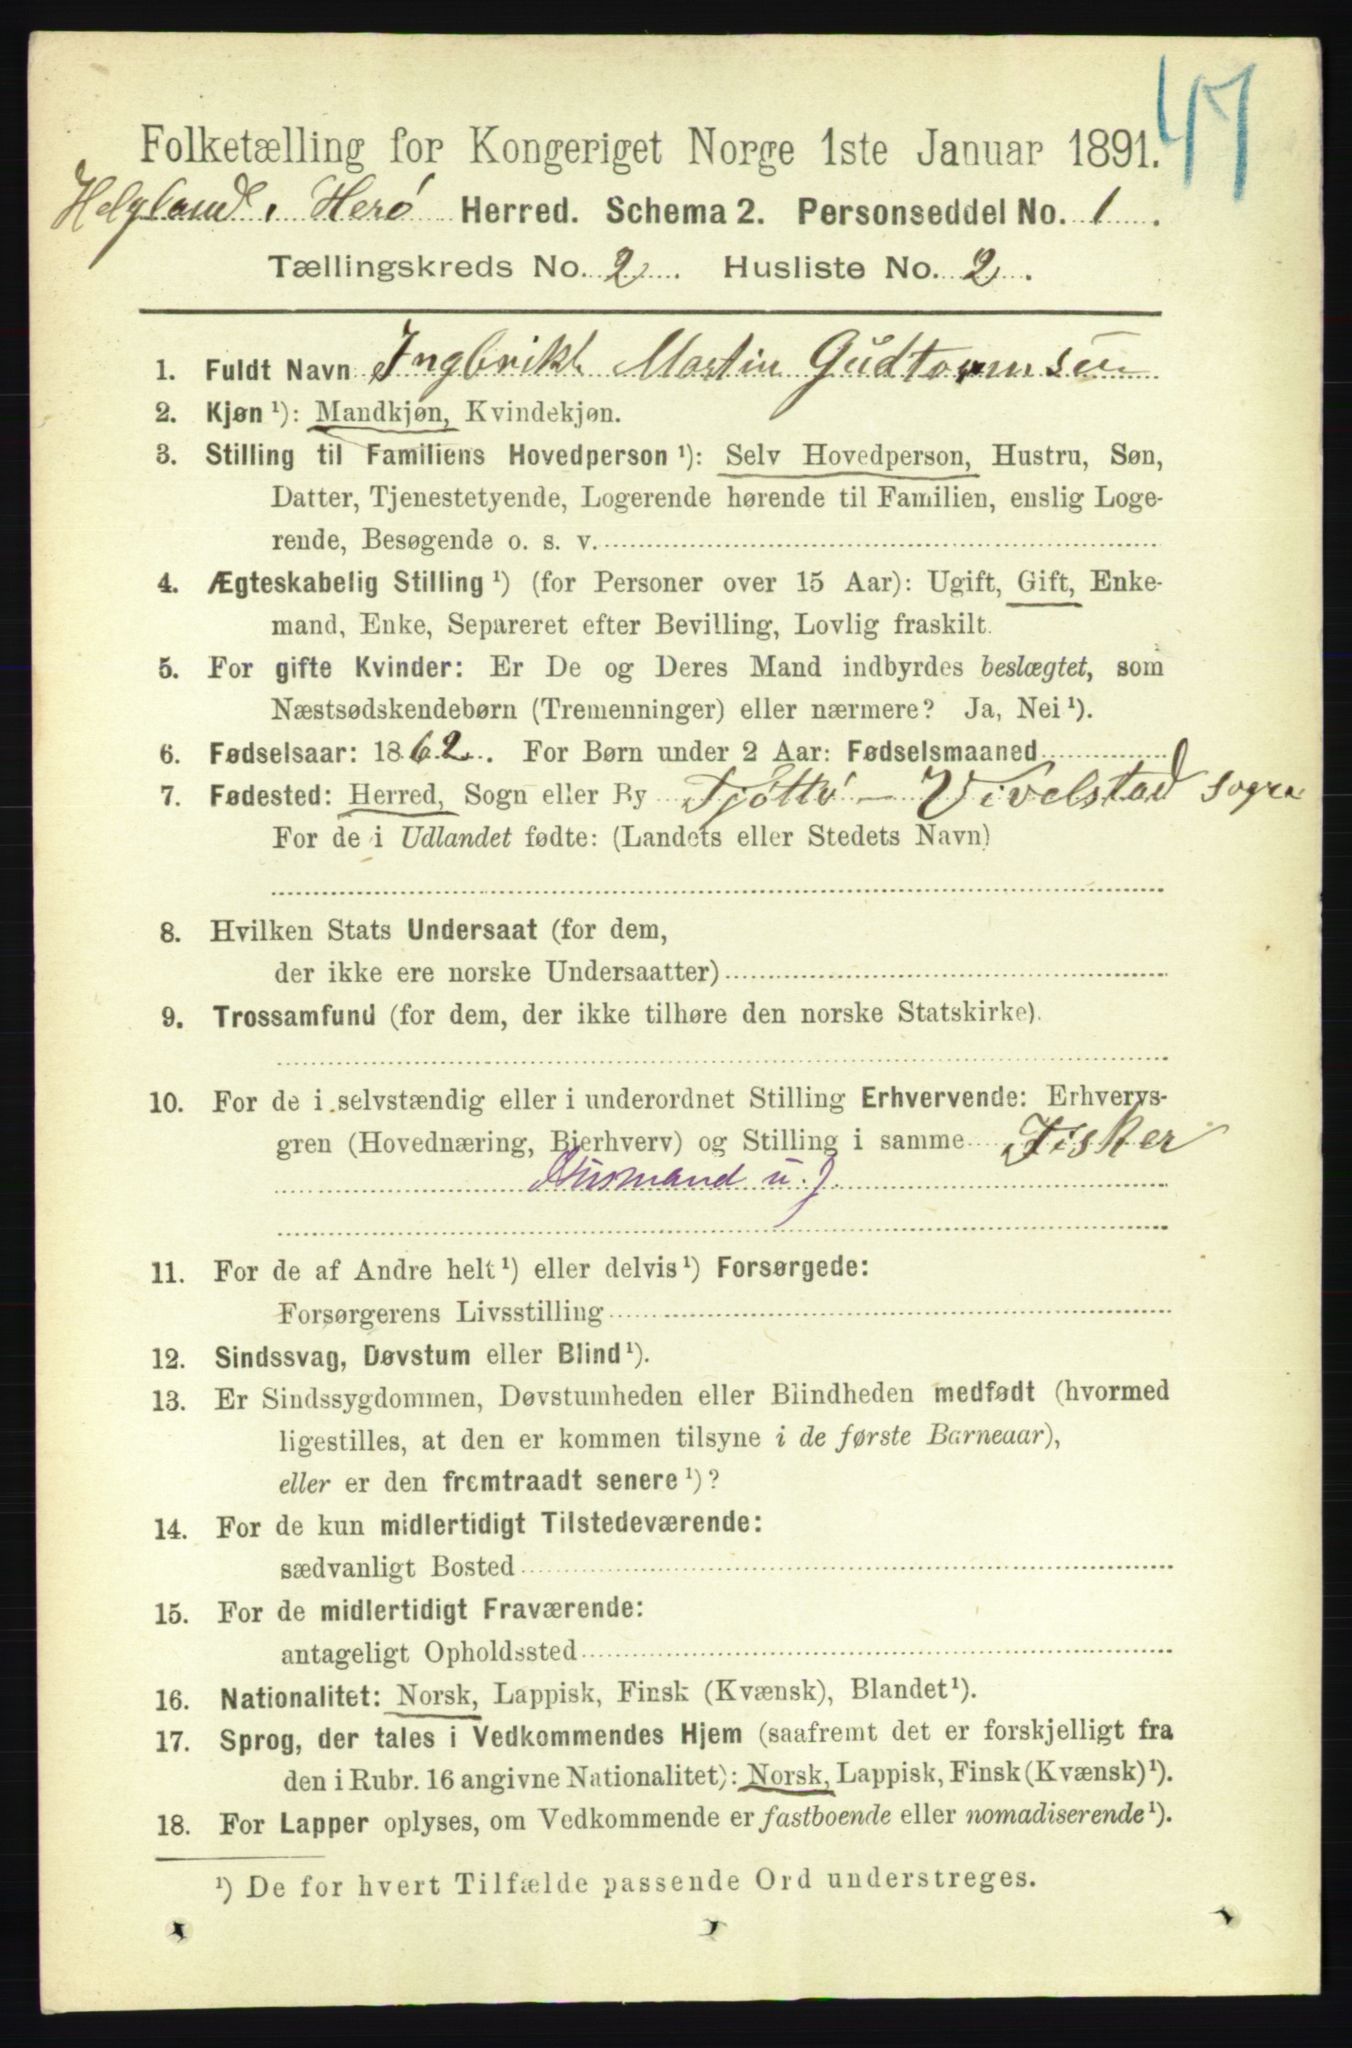 47
Folketælling for Kongeriget Norge 1ste Januar 1891.
Helgland, Herø Herred. Schema 2. Personseddel No. 1.
Tællingskreds No. 2. Husliste No. 2.
1. Fuldt Navn Ingbrikt Martin Gudtormsen
2. Kjøn ¹): Mandkjøn, Kvindekjøn.
3. Stilling til Familiens Hovedperson ¹): Selv Hovedperson, Hustru, Søn,
Datter, Tjenestetyende, Logerende hørende til Familien, enslig Loge-
rende, Besøgende o. s. v.
4. Ægteskabelig Stilling ¹) (for Personer over 15 Aar): Ugift, Gift, Enke-
mand, Enke, Separeret efter Bevilling, Lovlig fraskilt.
5. For gifte Kvinder: Er De og Deres Mand indbyrdes beslægtet, som
Næstsødskendebørn (Tremenninger) eller nærmere? Ja, Nei ¹).
6. Fødselsaar: 1862. For Børn under 2 Aar: Fødselsmaaned
7. Fødested: Herred, Sogn eller By Tjøttø - Vivelstad sogn
For de i Udlandet fødte: (Landets eller Stedets Navn)
8. Hvilken Stats Undersaat (for dem,
der ikke ere norske Undersaatter)
9. Trossamfund (for dem, der ikke tilhøre den norske Statskirke).
10. For de i selvstændig eller i underordnet Stilling Erhvervende: Erhvervs-
gren (Hovednæring, Bierhverv) og Stilling i samme Fisker
Husmand u. J.
11. For de af Andre helt ¹) eller delvis ¹) Forsørgede:
Forsørgerens Livsstilling
12. Sindssvag, Døvstum eller Blind ¹).
13. Er Sindssygdommen, Døvstumheden eller Blindheden medfødt (hvormed
ligestilles, at den er kommen tilsyne i de første Barneaar),
eller er den fremtraadt senere ¹)?
14. For de kun midlertidigt Tilstedeværende:
sædvanligt Bosted
15. For de midlertidigt Fraværende:
antageligt Opholdssted
16. Nationalitet: Norsk, Lappisk, Finsk (Kvænsk), Blandet ¹).
17. Sprog, der tales i Vedkommendes Hjem (saafremt det er forskjelligt fra
den i Rubr. 16 angivne Nationalitet): Norsk, Lappisk, Finsk (Kvænsk) ¹).
18. For Lapper oplyses, om Vedkommende er fastboende eller nomadiserende ¹).
¹) De for hvert Tilfælde passende Ord understreges.